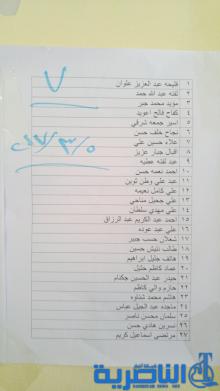 ٧
٢٠١٧/٣/٥
١ فليحه عبد العزيز علوان
٢ لفته عبد الله حمد
٣ مؤيد محمد جبر
٤ كفاح فالح اعويد
٥ اسير جمعه شرقي
٦ نجاح خلف حسن
٧ علاء حسين علي
٨ اقبال جبار عزيز
٩ عبد لفته عطيه
١٠ احمد نعمه حسن
١١ عبد علي وطن ثوين
١٢ علي كامل نعيمه
١٣ علي جحيل مناحي
١٤ علي مهدي سلطان
١٥ احمد عبد الكريم عبد الرزاق
١٦ علي عبد عوده
١٧ شعلان حسب جبير
١٨ طالب نتيش حسين
١٩ هاتف جليل ابراهيم
٢٠ عماد كاظم خليل
٢١ حيدر عبد الحسين جكنام
٢٢ حازم والي كاظم
٢٣ هاشم محمد شناوه
٢٤ ماجده عبد الجبل عباس
٢٥ سلمان محسن ناصر
٢٦ نسرين هادي حسن
٢٧ مرتضى اسماعيل كريم
الناصرية